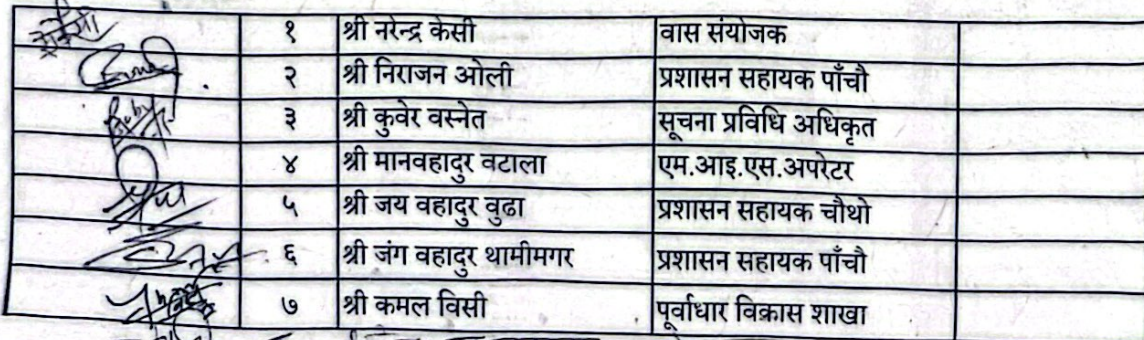 १ श्री नरेन्द्र केसी वास संयोजक
२ श्री निराजन ओली प्रशासन सहायक पाँचौ
३ श्री कुवेर वस्नेत सूचना प्रविधि अधिकृत
४ श्री मानवहादुर वटाला एम.आइ.एस.अपरेटर
५ श्री जय वहादुर वुढा प्रशासन सहायक चौथो
६ श्री जंग वहादुर थामीमगर प्रशासन सहायक पाँचौ
७ श्री कमल विसी पूर्वाधार विकास शाखा